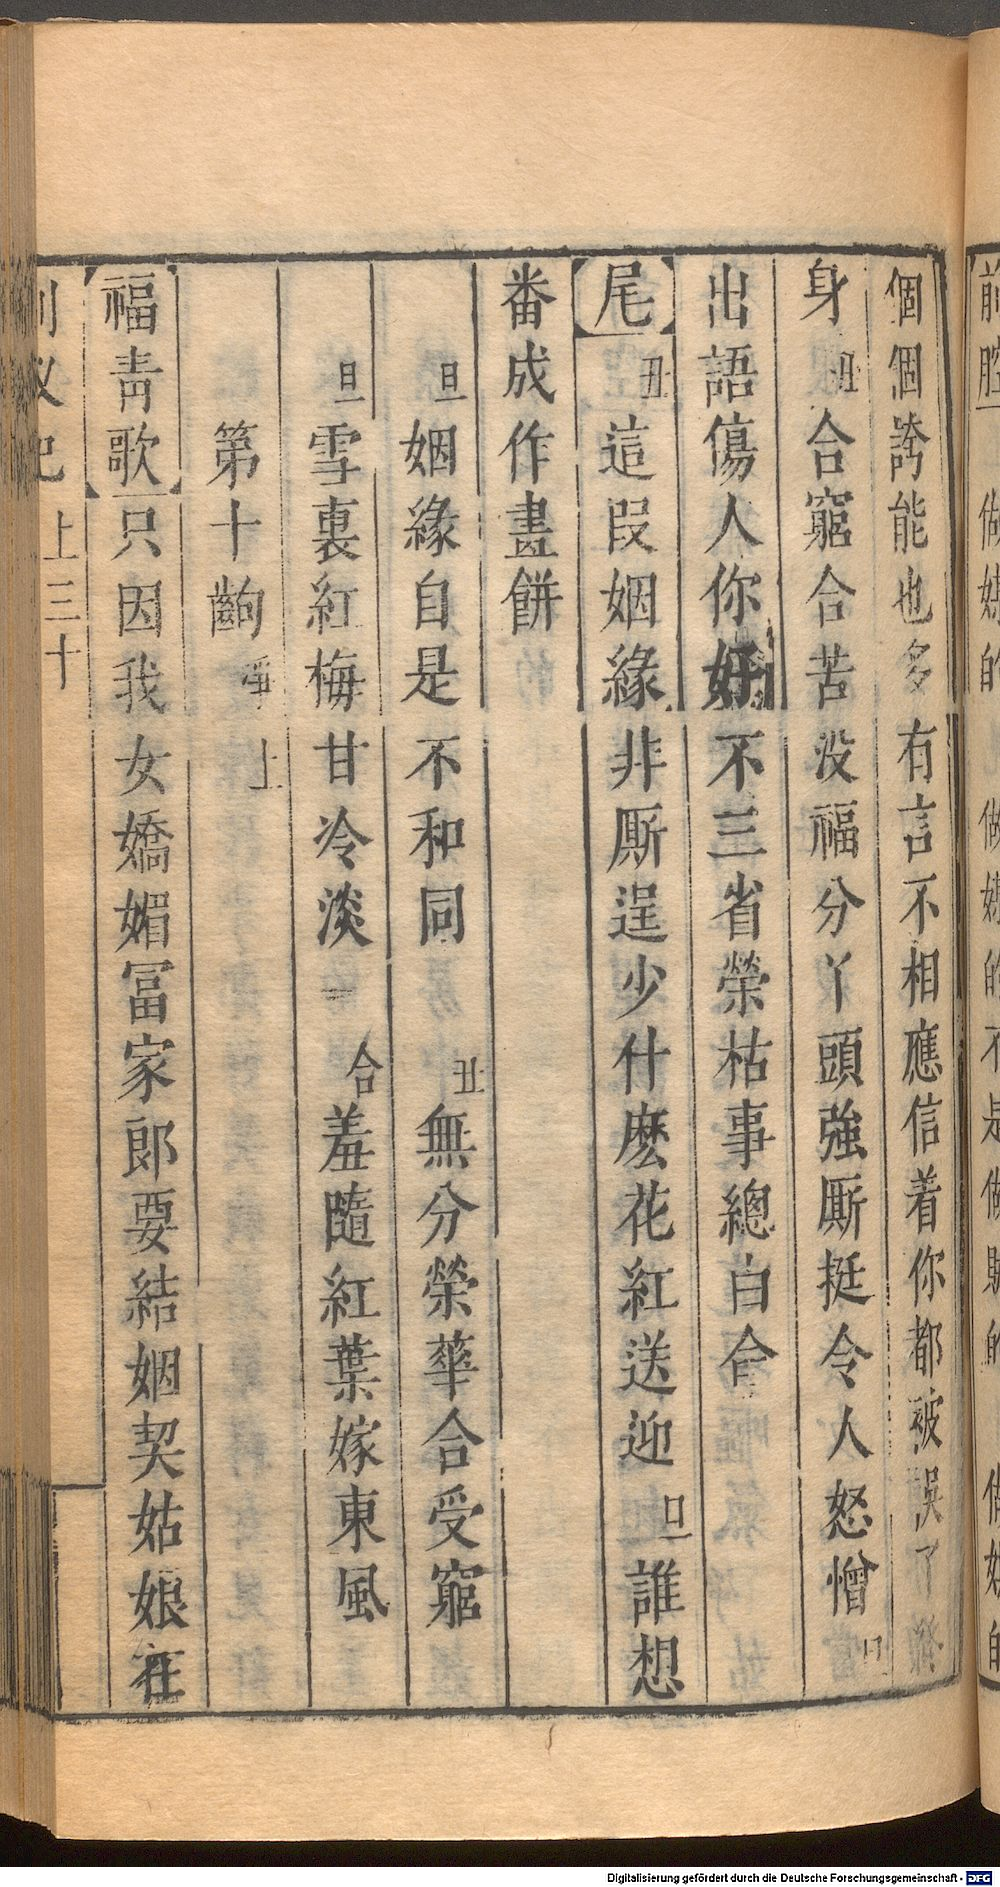 個個誇能也多有言不相應信着你都被誤了終
身丑合窮合苦没福分丫頭強厮挺令人怒憎
出語傷人你好不三省榮枯事總白合
尾丑這叚姻緣非厮逞少什麽花紅送迎 誰想
番成作畫餅
旦姻緣自是不和同 丑無分榮華合受窮
旦雪裏紅梅甘冷淡 合羞隨紅葉嫁東風
第十齣 上
福青歌只因我女嬌媚冨家郎要結姻契姑娘在
上三十
Digitalisierung gefördert durch die Deutsche Forschungsgemeinschaft - DFG